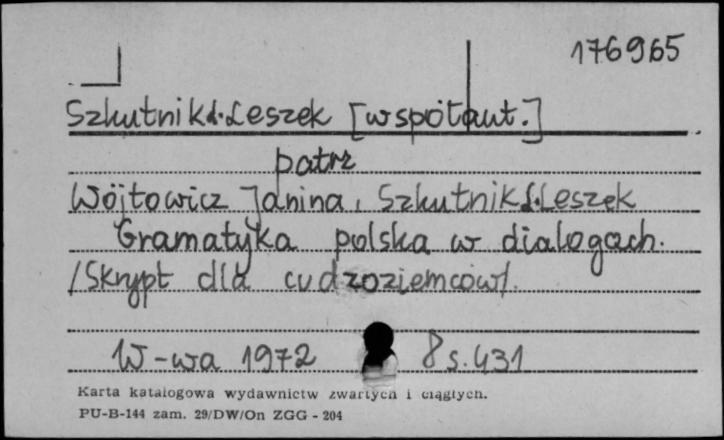 176965
Szkutnik L. Leszek [współaut.]
patrz
Wójtowicz Janina, Szkutnik L. Leszek
Gramatyka polska w dialogach.
/Skrypt dla cudzoziemców/.
W-wa 1972 8 s. 431
Karta katalogowa wydawnictw zwartych i ciągłych.
PU-B-144 zam. 29/DW/On ZGG - 204